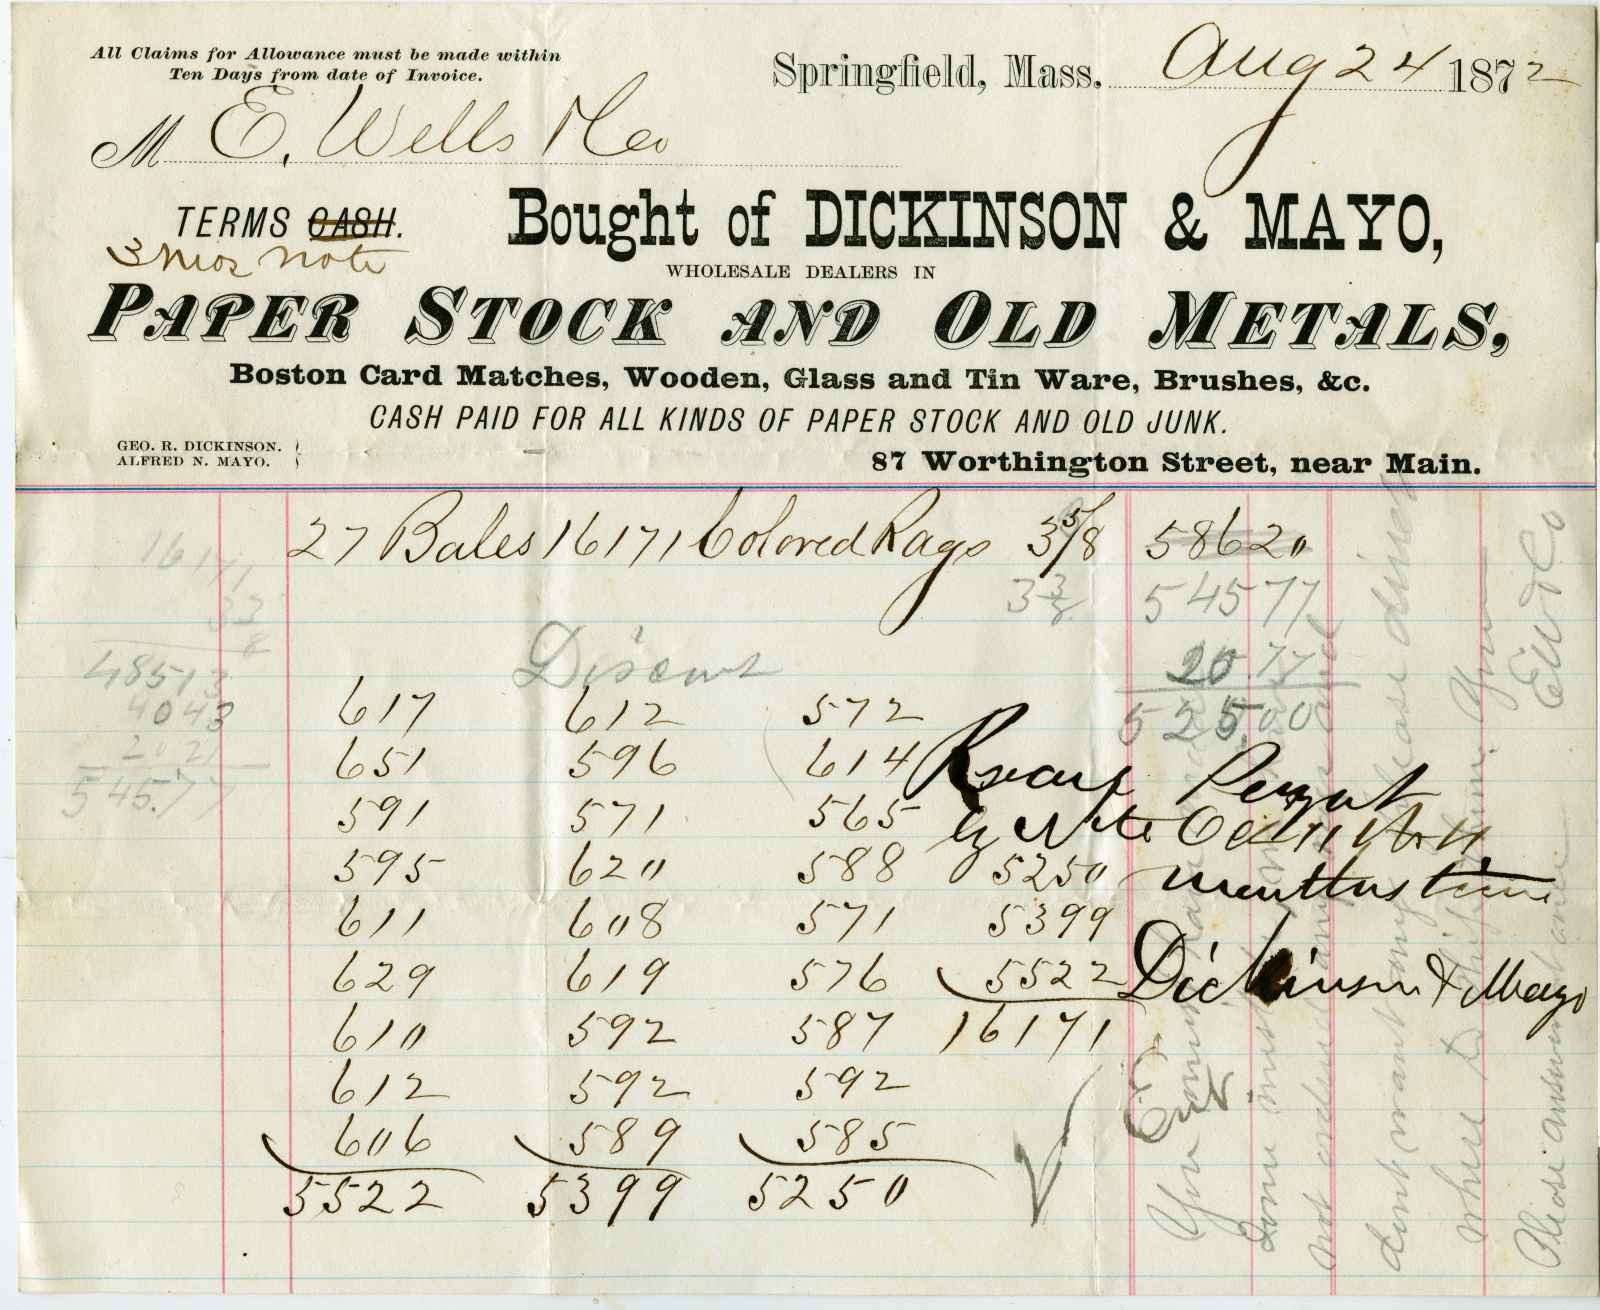 All Claims for Allowance must be made within
Ten Days from date of Invoice.
Springfield, Mass. Aug 24 1872
M E. Wells & Co
TERMS CASH.
3 mos note
Bought of DICKINSON & MAYO,
WHOLESALE DEALERS IN
PAPER STOCK AND OLD METALS,
Boston Card Matches, Wooden, Glass and Tin Ware, Brushes, &c.
CASH PAID FOR ALL KINDS OF PAPER STOCK AND OLD JUNK.
GEO. R. DICKINSON.
ALFRED N. MAYO.
87 Worthington Street, near Main.
27 Bales 16171 Colored Rags 3 5/8 58620
3 3/8 54577
20.77
525.00
16171
33
8
48513
4043
2021
545.77
Discount
617 612 572
651 596 614
591 571 565
595 620 588 5250
611 608 571 5399
629 619 576 5522
610 592 587 16171
612 592 592
606 589 585
5522 5399 5250
by Note
months time
Dickinson & Mayo
You
some must
not
dont want any please
when
Please answer
Yours
E W & Co